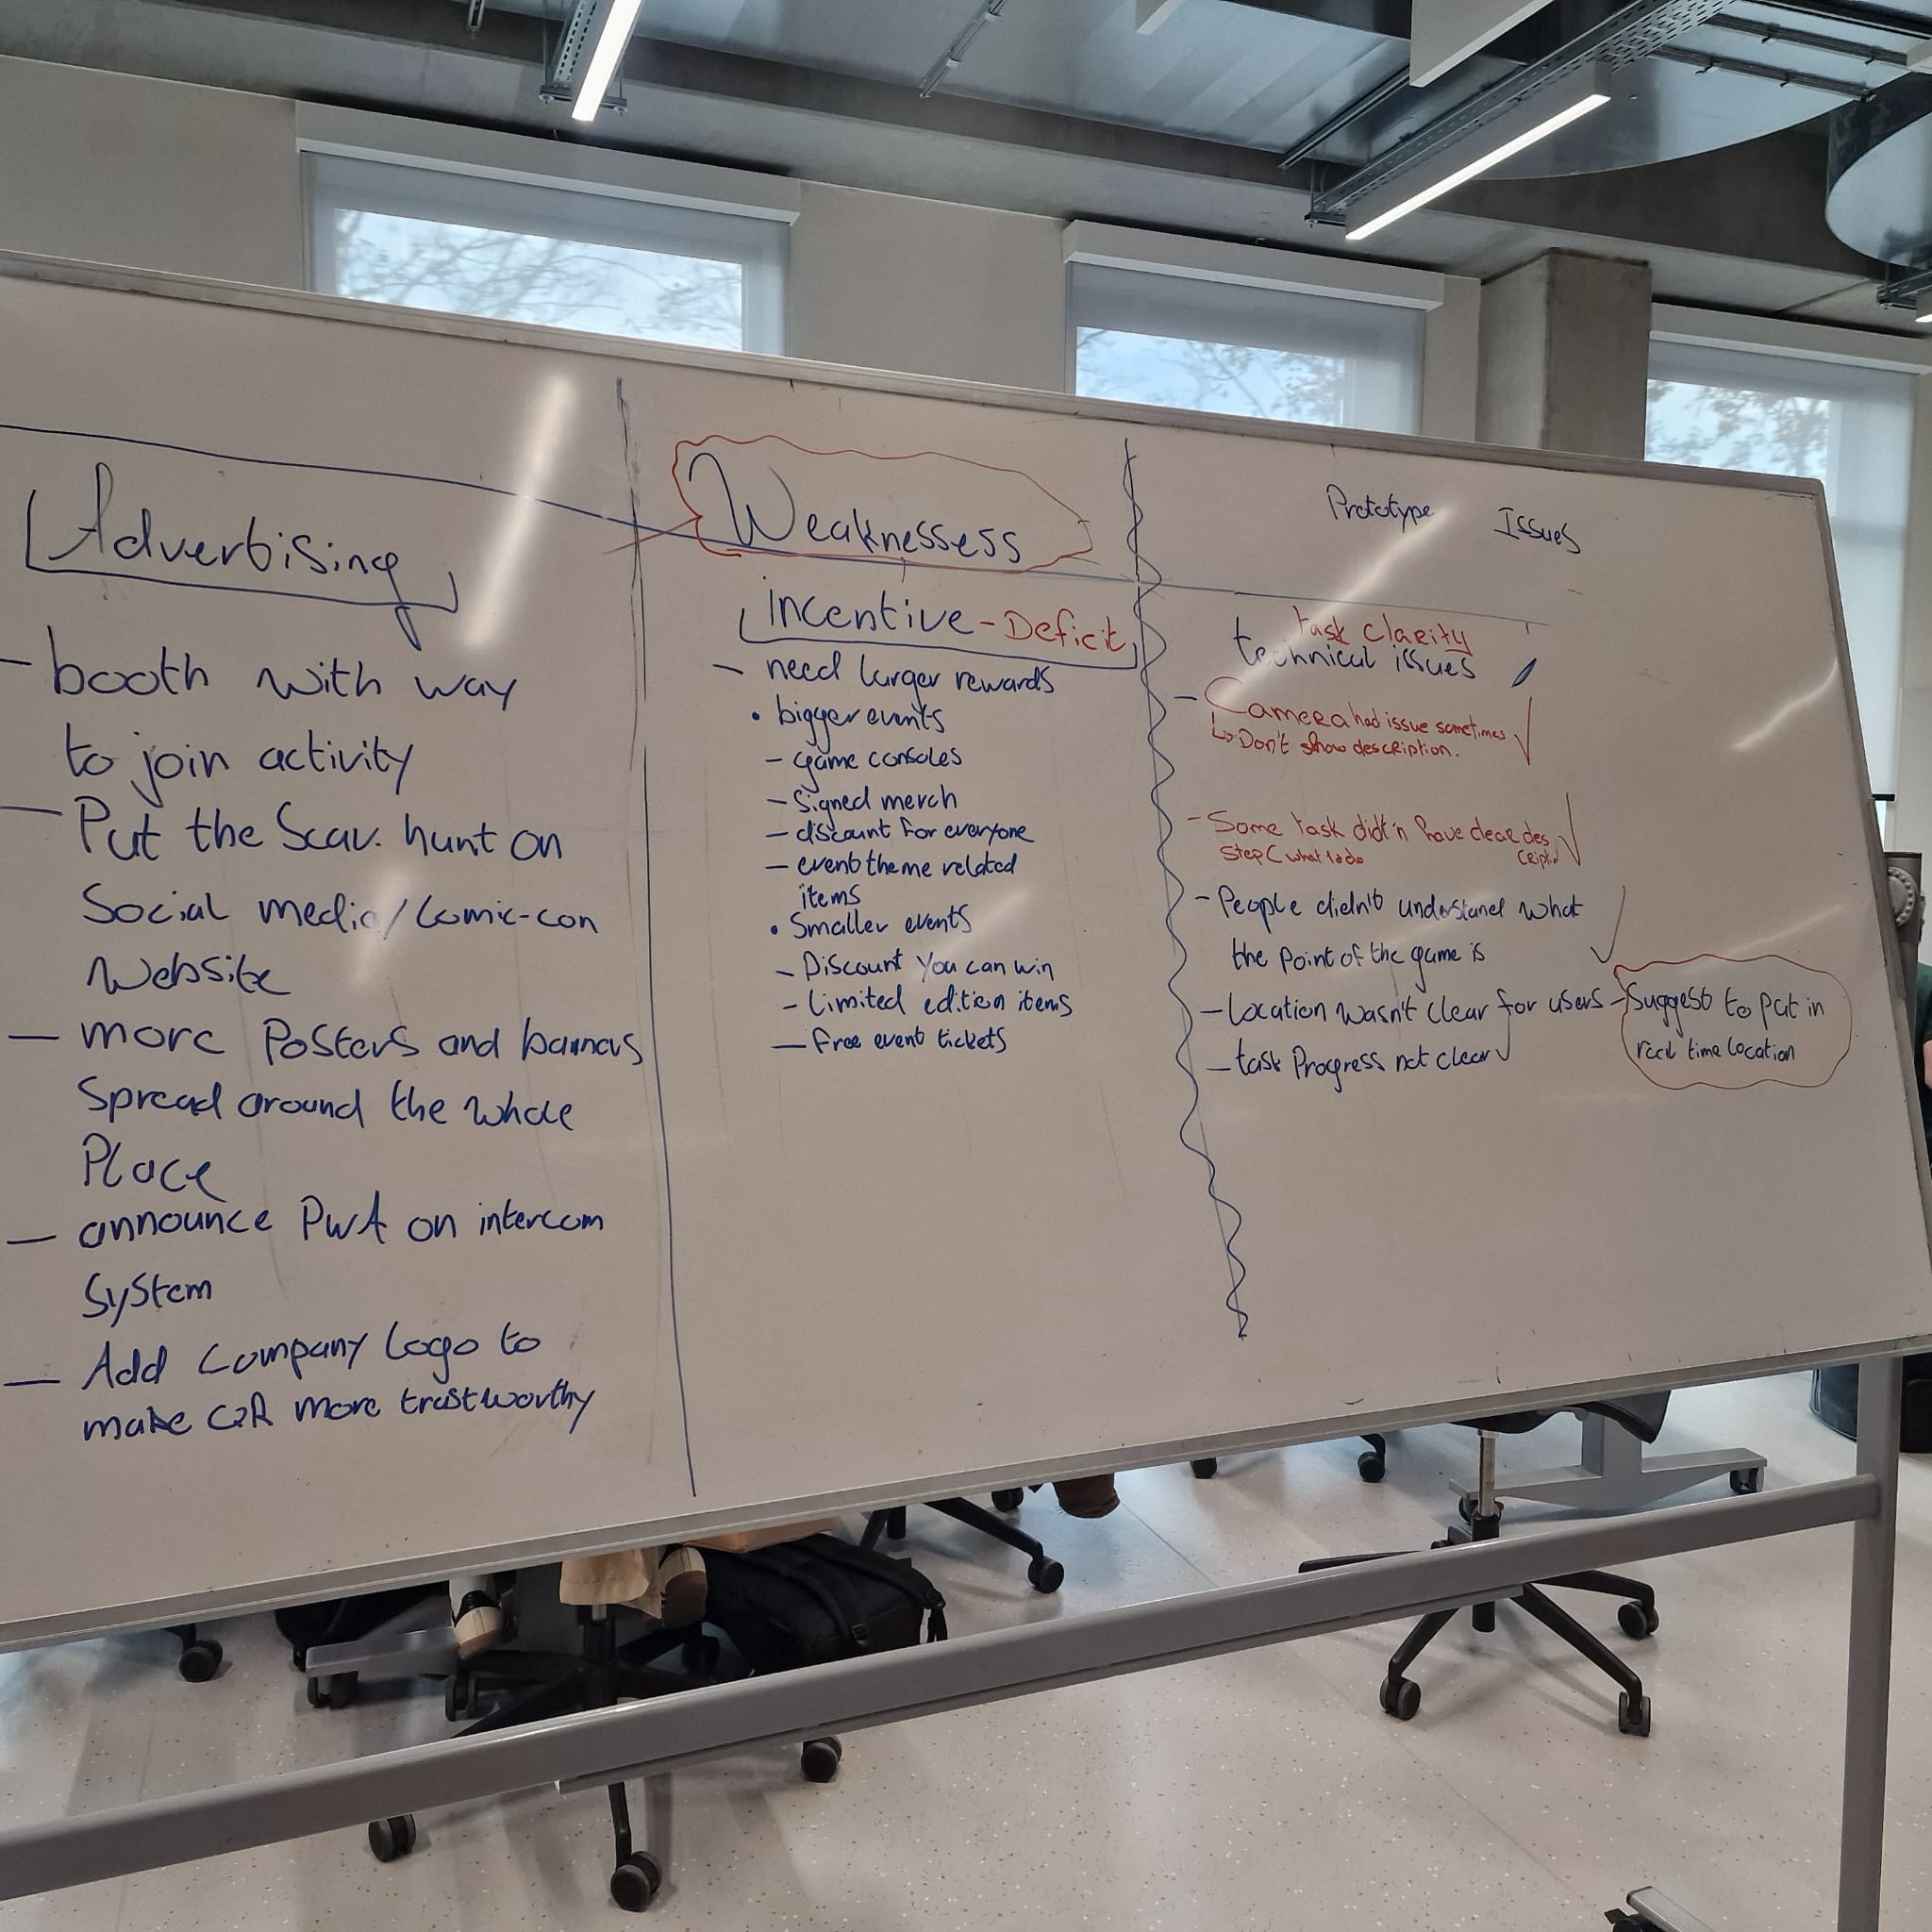 Advertising
- booth with way
to join activity
- Put the Scav. hunt on
Social media/Comic-con
Website
- more Posters and banners
Spread around the whole
Place
- announce PWA on intercom
System
- Add Company Logo to
make QR more trustworthy
Weaknessess
incentive - Deficit
- need larger rewards
• bigger events
- game consoles
- Signed merch
- discount for everyone
- event theme related
items
• Smaller events
- Discount you can win
- Limited edition items
- Free event tickets
Prototype Issues
task clarity
technical issues
- Camera had issue sometimes
↳ Don't show description.
- Some task didt'n have clear des
cription
Step ( what to do
- People didn't understand what
the point of the game is
- Location wasn't clear for users - Suggest to put in
real time location
- task Progress not clear